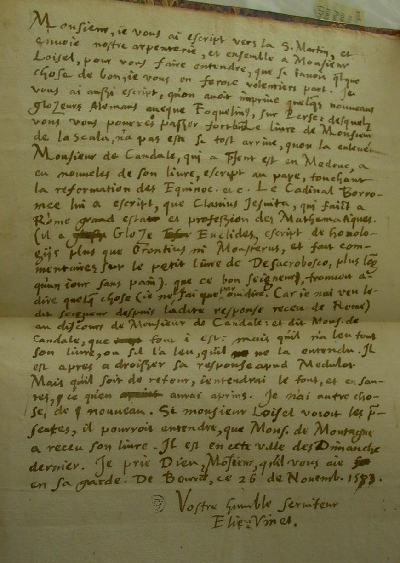 Monsieur, je vous ai escript vers la S. Martin, et
envoie nostre arpenterie, et ensemble a Monsieur
Loisel, pour vous faire entendre, que si j'avois quelque
chose de bon, je vous en ferois volentiers part. Je
vous ai aussi escript, qu'on avoit imprimé quelques nouveaus
glozeurs Alemans aveque Foquelinus, sur Perse: desquels
vous vous pourrés passer fort bien. Le livre de Monsieur
de la Scala, n'a pas esté si tost arrivé, qu'on l'a enlevé.
Monsieur de Candale, qui a present est en Medouc, a
eu nouveles de son livre, escript au pape, touchant
la reformation des Equinoc. etc. Le Cadinal Borro-
mee lui a escript, que Clavius Jesuita, qui faict a
Rome grand estat et profession des Mathematiques.
(il a Glozé Euclides, escript de horolo-
gijs plus que Orontius ni Monsterus, et faut com-
mentaires sur le petit livre de Desacrobosco, plus long
qu'un jour sans pain). que ce bon seigneur, trouvera a
dire quelque chose (je ne sai que
dit seigneur despuis ladite response receu de Rome)
au discours de Monsieur de Candale: et dit Mons. de
Candale, que tout i est: mais qu'il n'a leu tout
son livre, ou s'il l'a leu, qu'il ne l'a entendu. Il
est apres a droisser sa response apud Medulos
Mais qu'il soit de retour, j'entendrai le tout, et en sau-
res, ce qu'en aurai aprins. Je n'ai autre cho-
se, de nouveau. Si monsieur Loisel voioit les p-
sentes, il pourroit entendre, que Mons. de Montagne
a receu son livre. Il est en cete ville des Dimanche
dernier. Je prie Dieu, Monsieur, qu'il vous aie
en sa garde. De Bourd. ce 26 de Novemb. 1583.
Vostre humble serviteur
Elie Vinet.